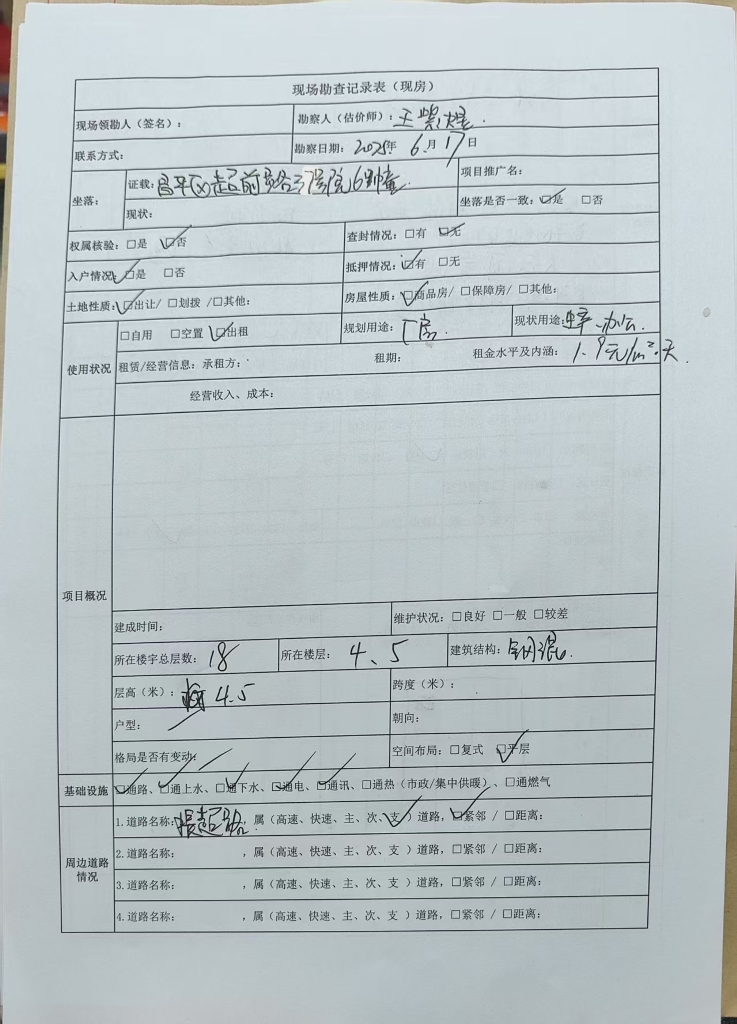 现场勘查记录表（现房）
现场领勘人（签名）： 勘察人（估价师）：王紫煜.
联系方式： 勘察日期：2025年 6月17日
坐落： 证载：昌平区超前路37号院16号 项目推广名：
现状： 坐落是否一致：☑是 □否
权属核验：□是 ☑否 查封情况：□有 ☑无
入户情况：☑是 □否 抵押情况：☑有 □无
土地性质：☑出让/ □划拨 /□其他： 房屋性质：☑商品房/ □保障房/ □其他：
使用状况 □自用 □空置 ☑出租 规划用途：厂房 现状用途：办公.
租赁/经营信息：承租方： 租期： 租金水平及内涵：1.9元/m²·天.
经营收入、成本：
项目概况
建成时间： 维护状况：□良好 □一般 □较差
所在楼宇总层数：18 所在楼层：4、5 建筑结构：钢混.
层高（米）：4.5 跨度（米）：
户型：／ 朝向：
格局是否有变动：／ 空间布局：□复式 ☑平层
基础设施 ☑通路、☑通上水、☑通下水、☑通电、☑通讯、□通热（市政/集中供暖）、□通燃气
周边道路情况 1.道路名称：振超路.，属（高速、快速、主、次、支✓）道路，☑紧邻 / □距离：
2.道路名称： ，属（高速、快速、主、次、支 ）道路，□紧邻 / □距离：
3.道路名称： ，属（高速、快速、主、次、支 ）道路，□紧邻 / □距离：
4.道路名称： ，属（高速、快速、主、次、支 ）道路，□紧邻 / □距离：